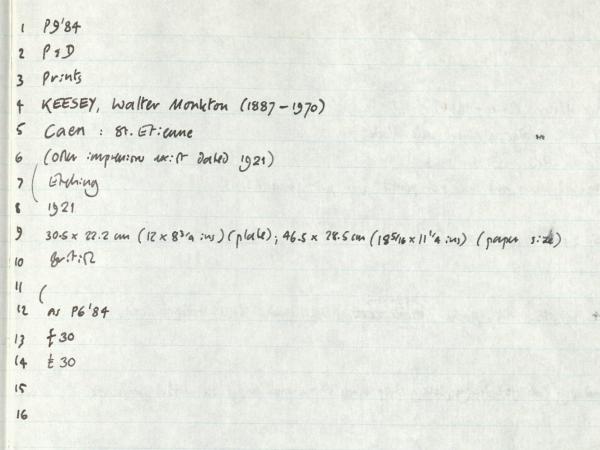 1 P9'84
2 P&D
3 Prints
4 KEESEY, Walter Monkton (1887-1970)
5 Caen : St. Etienne
6 (Other impressions exist dated 1921)
7 ( Etching
8 1921
9 30.5 x 22.2 cm (12 x 8 3/4 ins) (plate); 46.5 x 28.5 cm (18 5/16 x 11 1/4 ins) (paper size)
10 British
11 (
12 as P6'84
13 £30
14 £30
15
16